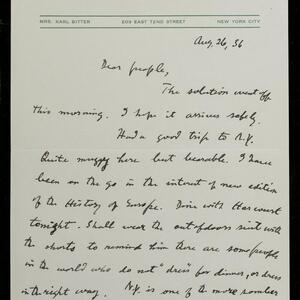 MRS. KARL BITTER 209 EAST 72ND STREET NEW YORK CITY
Aug. 26, 36
Dear people,
The solution went off
this morning. I hope it arrives safely.
Had a good trip to N.Y.
Quite muggy here but bearable. I have
been on the go in the interest of new edition
of the History of Europe. Dine with Harcourt
tonight. Shall wear the outofdoors suit with
the shorts to remind him there are some people
in the world who do not "dress" for dinner, or dress
in the right way. N.Y. is one of the more somber